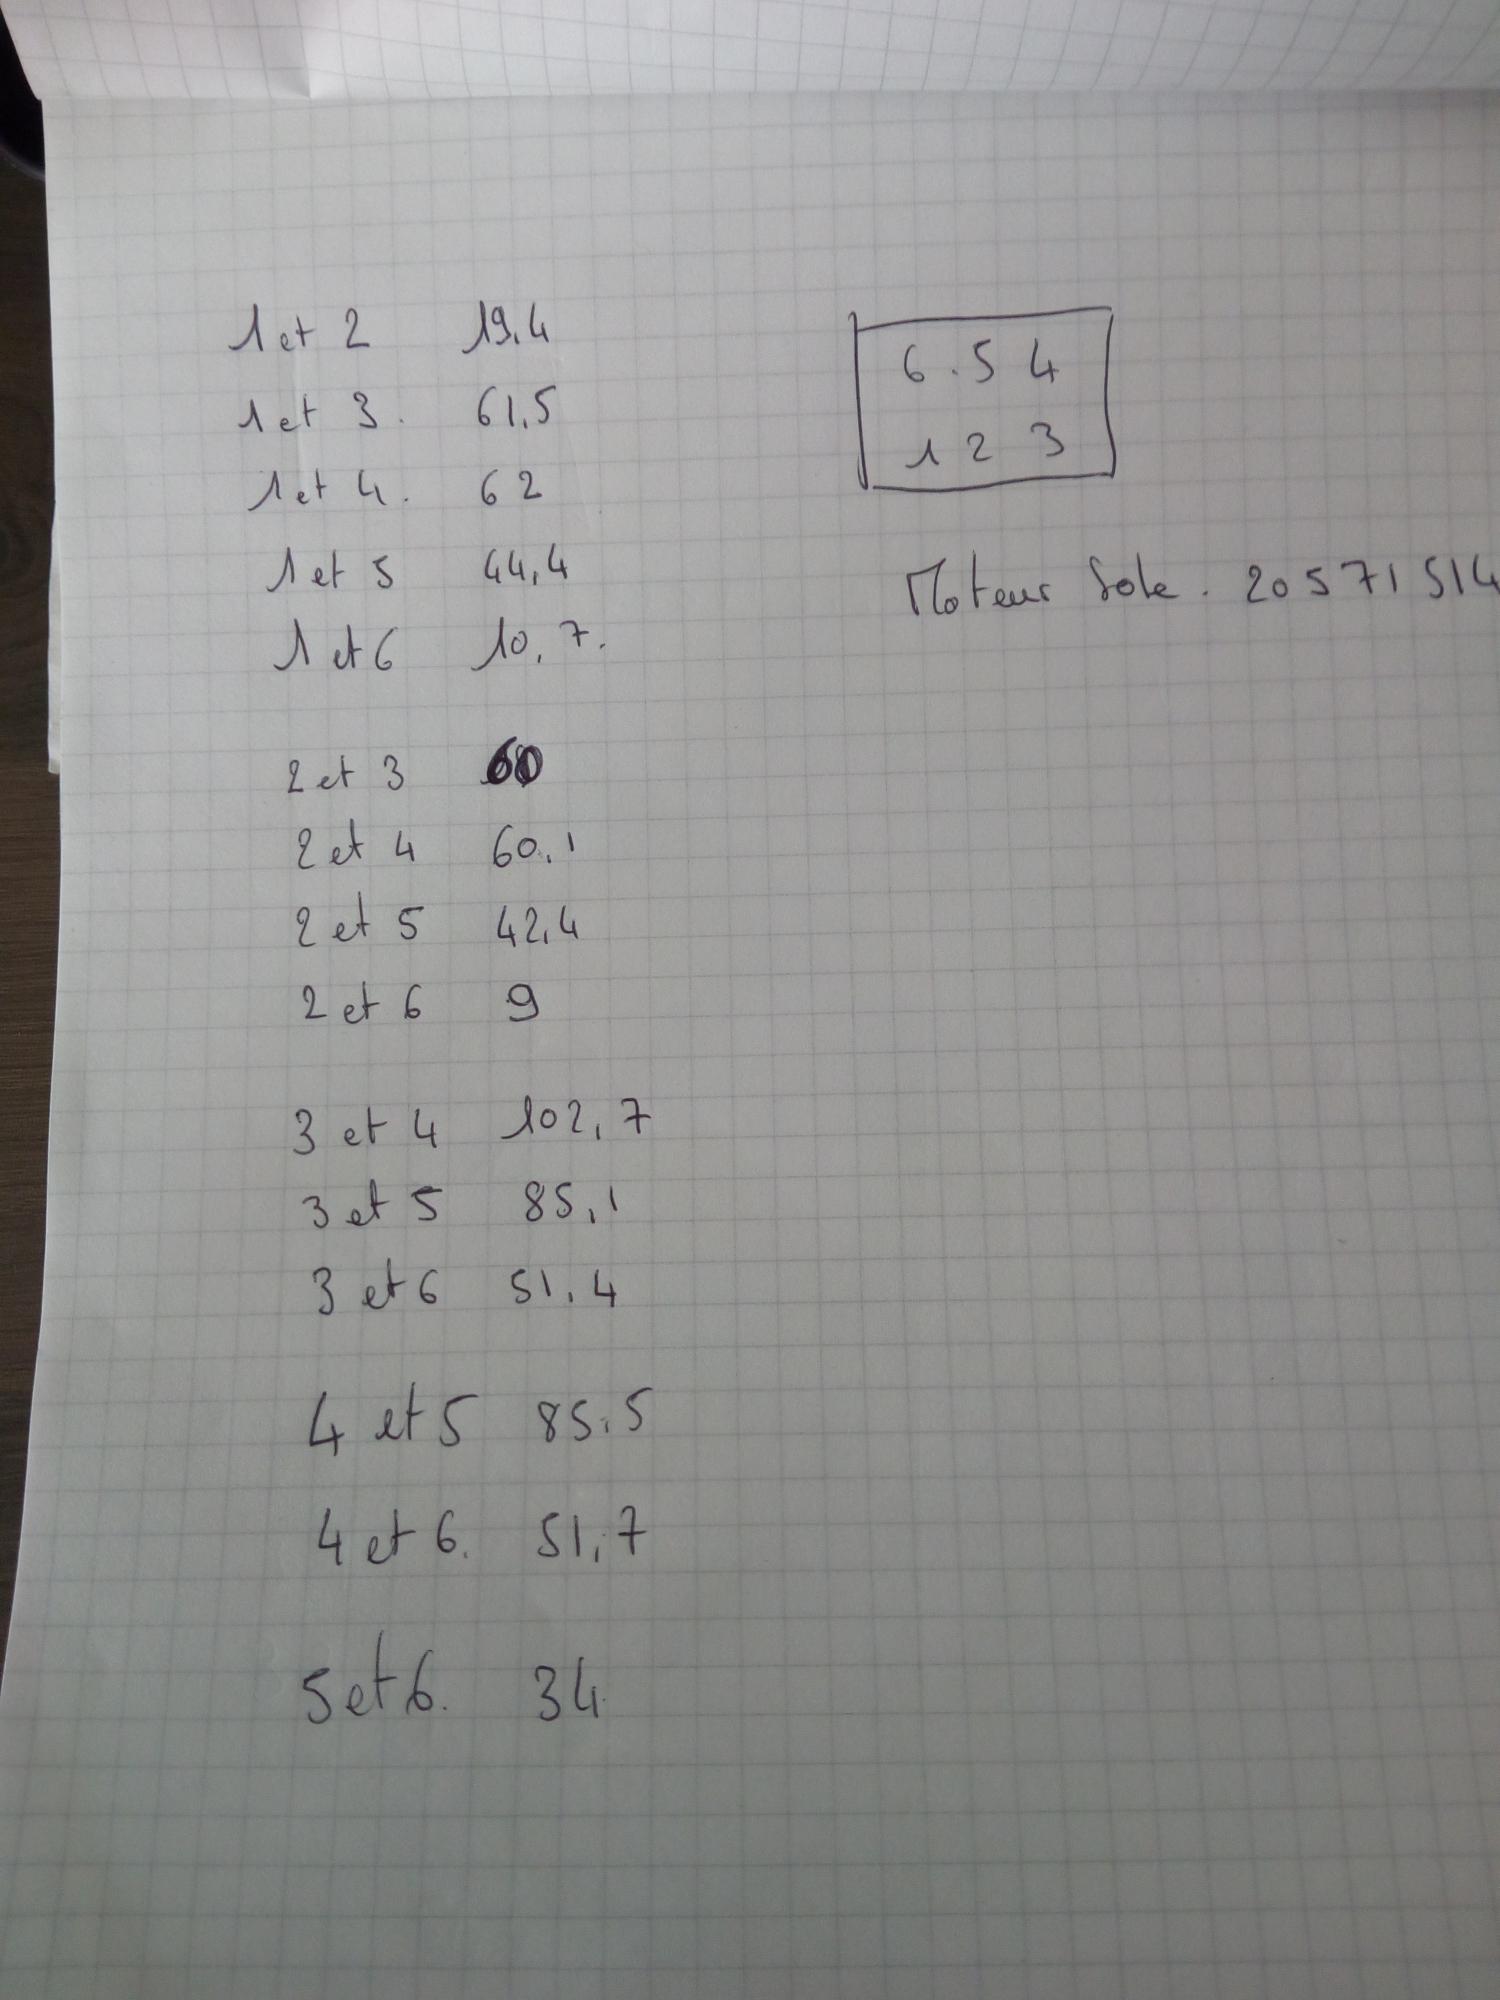 1 et 2 19,4
1 et 3. 61,5
1 et 4. 62
1 et 5 44,4
1 et 6 10,7.
2 et 3 60
2 et 4 60,1
2 et 5 42,4
2 et 6 9
3 et 4 102,7
3 et 5 85,1
3 et 6 51,4
4 et 5 85,5
4 et 6. 51,7
5 et 6. 34
6.54
1 2 3
Moteur Sole. 20571514